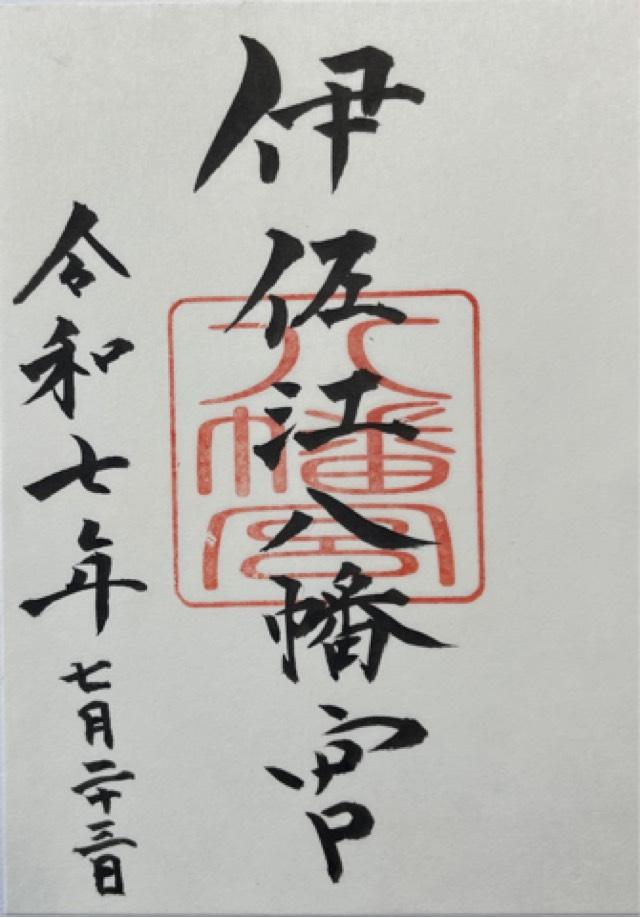 伊佐江八幡宮
八幡宮
令和七年七月二十三日